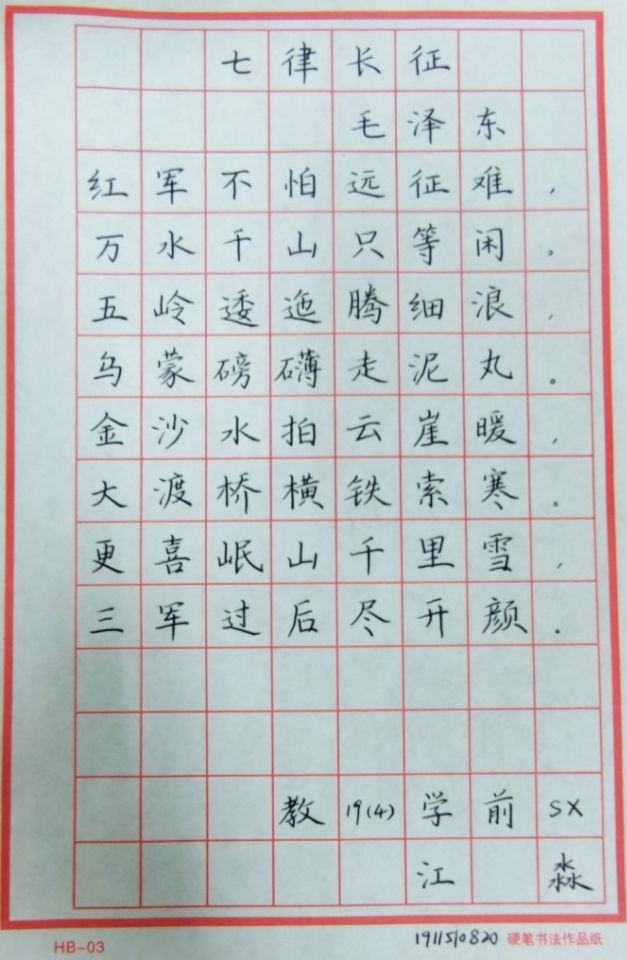 七律长征
毛泽东
红军不怕远征难，
万水千山只等闲。
五岭逶迤腾细浪，
乌蒙磅礴走泥丸。
金沙水拍云崖暖，
大渡桥横铁索寒。
更喜岷山千里雪，
三军过后尽开颜。
教19(4)学前SX
江淼
HB-03 1911510820 硬笔书法作品纸